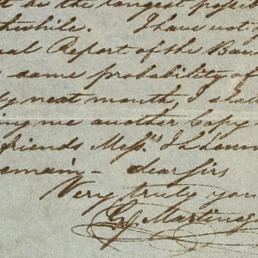 be the longest possib
while. I have not y
al Report of the Ban
same probability of
next month, I shal
me another copy
friends Messrs
remain - dear sirs
Very truly you
Martinez